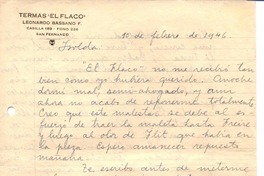 TERMAS "EL FLACO"
LEONARDO BASSANO F.
CASILLA 189 - FONO 226
SAN FERNANDO
10 de febrero de 1946.
Isolda:
El "Flaco" no me recibió tan
bien como yo hubiera querido. Anoche
dormí mal, semi-ahogado, y aun
ahora no acabo de reponerme totalmente.
Creo que este malestar se debe al es-
fuerzo de traer la maleta hasta Freire
y luego al olor de Flit que había en
la pieza. Espero amanecer repuesto
mañana.
Te escribo antes de meterme